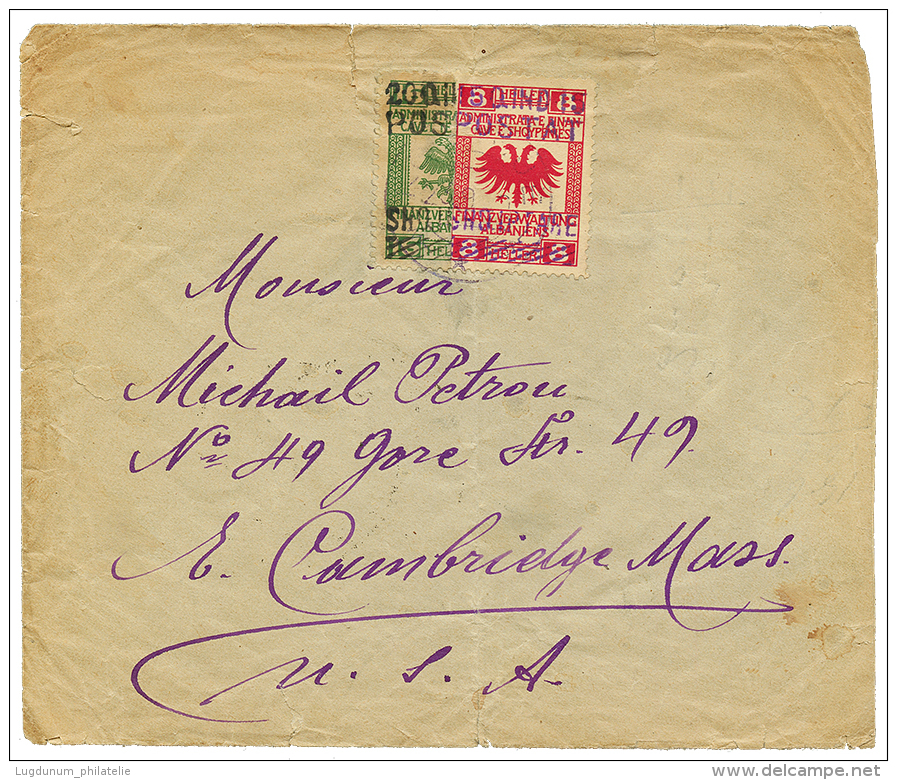 8 HELLER 8
ADMINISTRATA E FINAN
CAVE E SHQYPENIES
FINANZVERWALTUNG
ALBANIENS
8 HELLER 8
Monsieur
Michail Petrou
No 49 Gore Str. 49
E. Cambridge Mass.
U. S. A.
Lugdunum_philatelie
www.delcampe.net